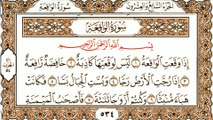 سورة الواقعة
الجزء السابع والعشرون
سورة الواقعة
بسم الله الرحمن الرحيم
إذا وقعت الواقعة ۝ ليس لوقعتها كاذبة ۝ خافضة رافعة
۝ إذا رجت الأرض رجا ۝ وبست الجبال بسا ۝ فكانت
هباء منبثا ۝ وكنتم أزواجا ثلاثة ۝ فأصحاب الميمنة
٥٣٤